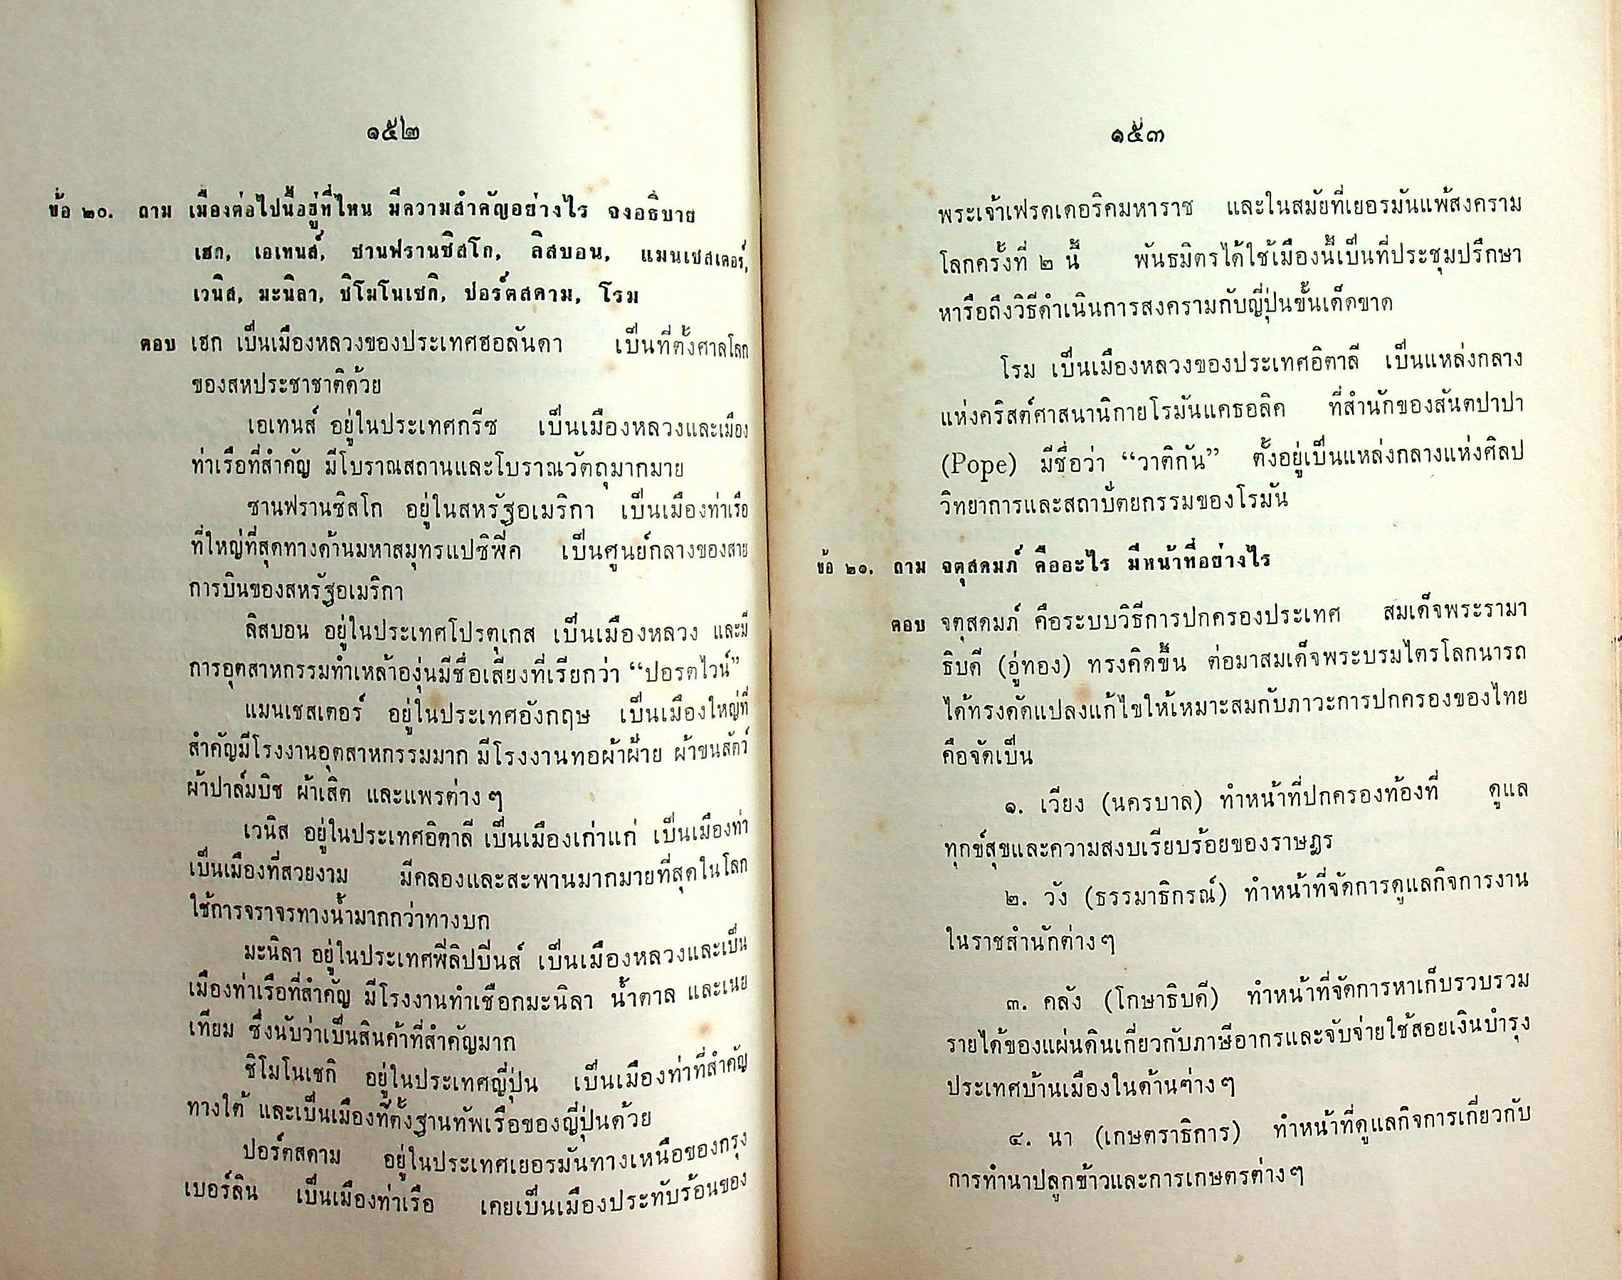 ๑๕๒
ข้อ ๒๐. ถาม เมืองต่อไปนี้อยู่ที่ไหน มีความสำคัญอย่างไร จงอธิบาย
เฮก, เอเทนส์, ซานฟรานซิสโก, ลิสบอน, แมนเชสเตอร์,
เวนิส, มะนิลา, ชิโมโนเซกิ, ปอร์ตสดาม, โรม
ตอบ เฮก เป็นเมืองหลวงของประเทศฮอลันดา เป็นที่ตั้งศาลโลก
ของสหประชาชาติด้วย
เอเทนส์ อยู่ในประเทศกรีซ เป็นเมืองหลวงและเมือง
ท่าเรือที่สำคัญ มีโบราณสถานและโบราณวัตถุมากมาย
ซานฟรานซิสโก อยู่ในสหรัฐอเมริกา เป็นเมืองท่าเรือ
ที่ใหญ่ที่สุดทางด้านมหาสมุทรแปซิฟิค เป็นศูนย์กลางของสาย
การบินของสหรัฐอเมริกา
ลิสบอน อยู่ในประเทศโปรตุเกส เป็นเมืองหลวง และมี
การอุตสาหกรรมทำเหล้าองุ่นมีชื่อเสียงที่เรียกว่า “ปอรตไวน์”
แมนเชสเตอร์ อยู่ในประเทศอังกฤษ เป็นเมืองใหญ่ที่
สำคัญมีโรงงานอุตสาหกรรมมาก มีโรงงานทอผ้าฝ้าย ผ้าขนสัตว์
ผ้าปาล์มบิช ผ้าเสิต และแพรต่าง ๆ
เวนิส อยู่ในประเทศอิตาลี เป็นเมืองเก่าแก่ เป็นเมืองท่า
เป็นเมืองที่สวยงาม มีคลองและสะพานมากมายที่สุดในโลก
ใช้การจราจรทางน้ำมากกว่าทางบก
มะนิลา อยู่ในประเทศฟิลิปปินส์ เป็นเมืองหลวงและเป็น
เมืองท่าเรือที่สำคัญ มีโรงงานทำเชือกมะนิลา น้ำตาล และเนย
เทียม ซึ่งนับว่าเป็นสินค้าที่สำคัญมาก
ชิโมโนเซกิ อยู่ในประเทศญี่ปุ่น เป็นเมืองท่าที่สำคัญ
ทางใต้ และเป็นเมืองที่ตั้งฐานทัพเรือของญี่ปุ่นด้วย
ปอร์ตสดาม อยู่ในประเทศเยอรมันทางเหนือของกรุง
เบอร์ลิน เป็นเมืองท่าเรือ เคยเป็นเมืองประทับร้อนของ
๑๕๓
พระเจ้าเฟรดเดอริคมหาราช และในสมัยที่เยอรมันแพ้สงคราม
โลกครั้งที่ ๒ นี้ พันธมิตรได้ใช้เมืองนี้เป็นที่ประชุมปรึกษา
หารือถึงวิธีดำเนินการสงครามกับญี่ปุ่นขั้นเด็ดขาด
โรม เป็นเมืองหลวงของประเทศอิตาลี เป็นแหล่งกลาง
แห่งคริสต์ศาสนานิกายโรมันแคธอลิค ที่สำนักของสันตปาปา
(Pope) มีชื่อว่า “วาติกัน” ตั้งอยู่เป็นแหล่งกลางแห่งศิลป
วิทยาการและสถาปัตยกรรมของโรมัน
ข้อ ๒๑. ถาม จตุสดมภ์ คืออะไร มีหน้าที่อย่างไร
ตอบ จตุสดมภ์ คือระบบวิธีการปกครองประเทศ สมเด็จพระรามา
ธิบดี (อู่ทอง) ทรงคิดขึ้น ต่อมาสมเด็จพระบรมไตรโลกนารถ
ได้ทรงดัดแปลงแก้ไขให้เหมาะสมกับภาวะการปกครองของไทย
คือจัดเป็น
๑. เวียง (นครบาล) ทำหน้าที่ปกครองท้องที่ ดูแล
ทุกข์สุขและความสงบเรียบร้อยของราษฎร
๒. วัง (ธรรมาธิกรณ์) ทำหน้าที่จัดการดูแลกิจการงาน
ในราชสำนักต่าง ๆ
๓. คลัง (โกษาธิบดี) ทำหน้าที่จัดการหาเก็บรวบรวม
รายได้ของแผ่นดินเกี่ยวกับภาษีอากรและจับจ่ายใช้สอยเงินบำรุง
ประเทศบ้านเมืองในด้านต่าง ๆ
๔. นา (เกษตราธิการ) ทำหน้าที่ดูแลกิจการเกี่ยวกับ
การทำนาปลูกข้าวและการเกษตรต่าง ๆ